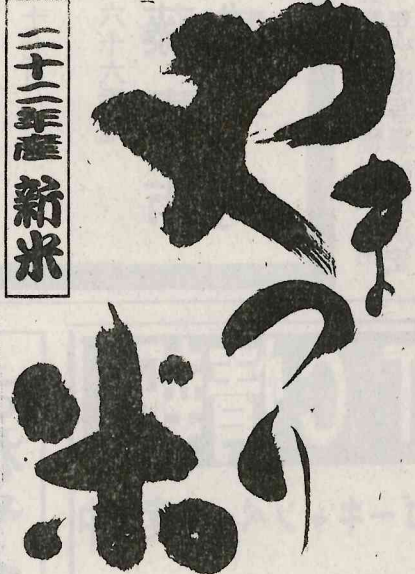 やまつり
米
二十二年産 新米